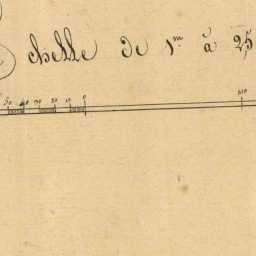 echelle de 1m à 25
50 40 30 20 10 0 100